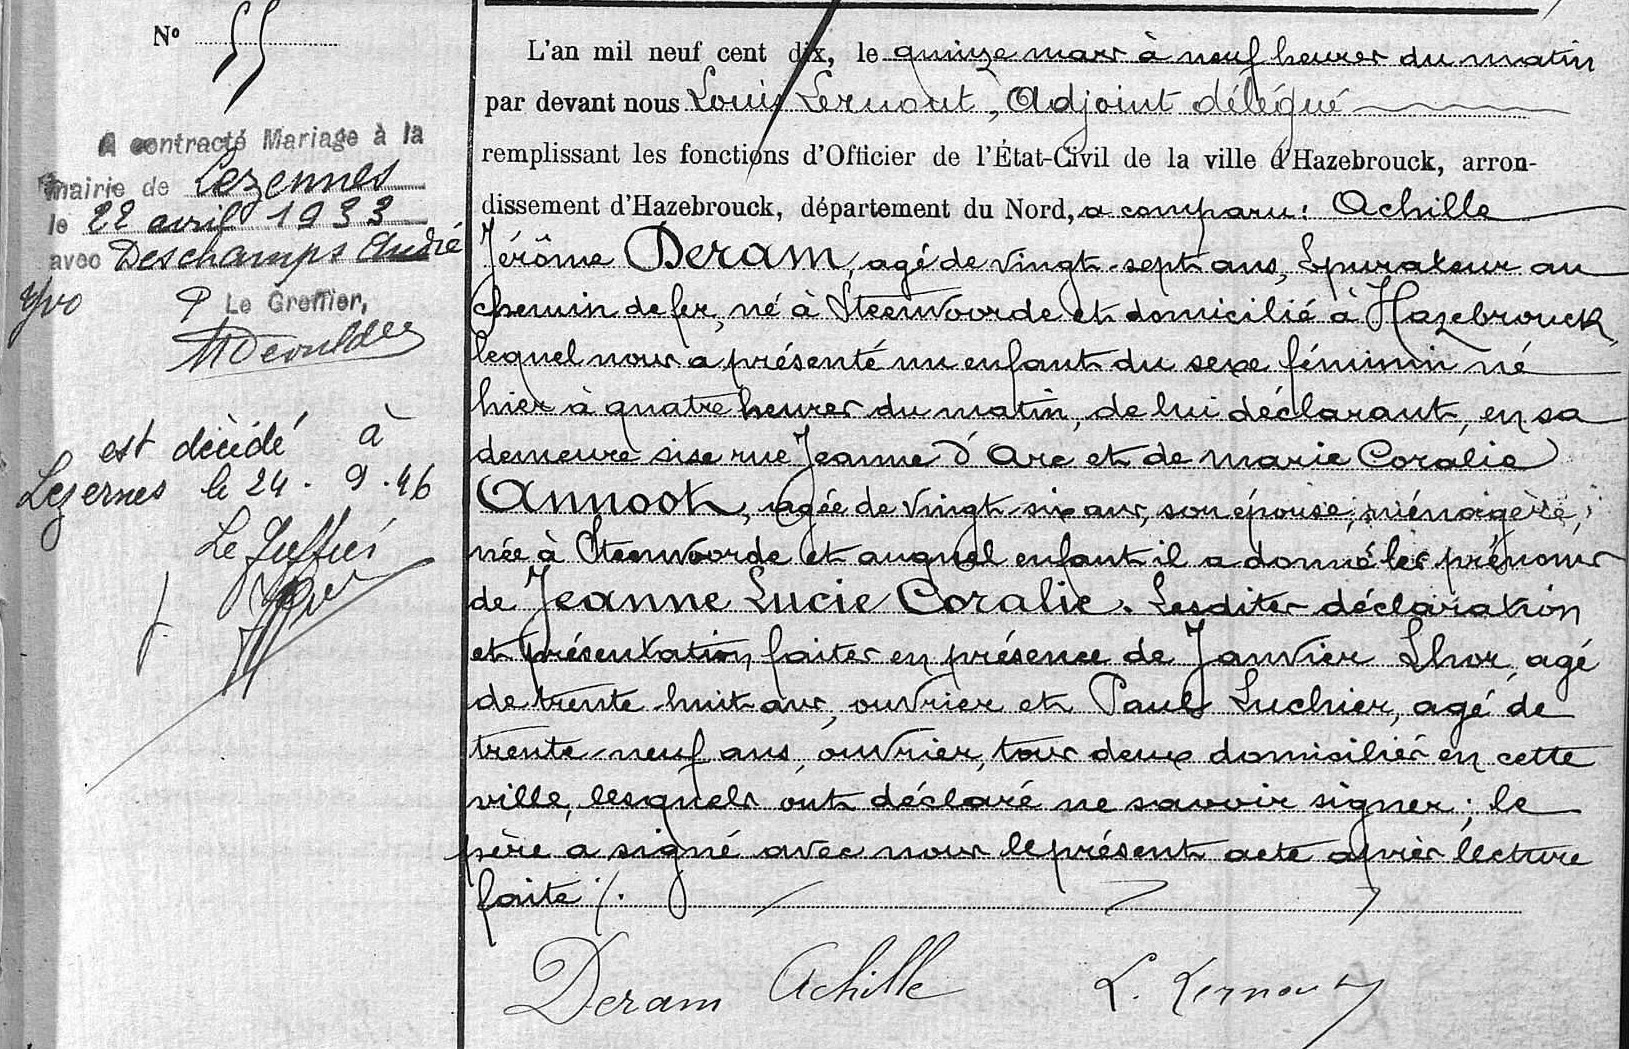 N° 55
A contracté Mariage à la
mairie de Lezennes
le 22 avril 1933
avec Deschamps André
Yvo
P Le Greffier,
est décédé à
Lezennes le 24. 9. 46
Le Greffier
L'an mil neuf cent dix, le quinze mars à neuf heures du matin
par devant nous Louis Lernout, Adjoint délégué
remplissant les fonctions d'Officier de l'État-Civil de la ville d'Hazebrouck, arron-
dissement d'Hazebrouck, département du Nord, a comparu: Achille
Jérôme Deram, agé de vingt-sept ans, Epurateur au
chemin de fer, né à Steenvoorde et domicilié à Hazebrouck,
lequel nous a présenté un enfant du sexe féminin né
hier à quatre heures du matin, de lui déclarant, en sa
demeure sise rue Jeanne d'Arc et de Marie Coralie
Annoot, agée de vingt-six ans, son épouse, ménagère,
née à Steenvoorde et auquel enfant il a donné les prénoms
de Jeanne Lucie Coralie. Lesdites déclaration
et présentation faites en présence de Janvier Lhor, agé
de trente-huit ans, ouvrier et Paul Luchier, agé de
trente-neuf ans, ouvrier, tous deux domiciliés en cette
ville, lesquels ont déclaré ne savoir signer; le
père a signé avec nous le présent acte après lecture
faite ./.
Deram Achille L. Lernout